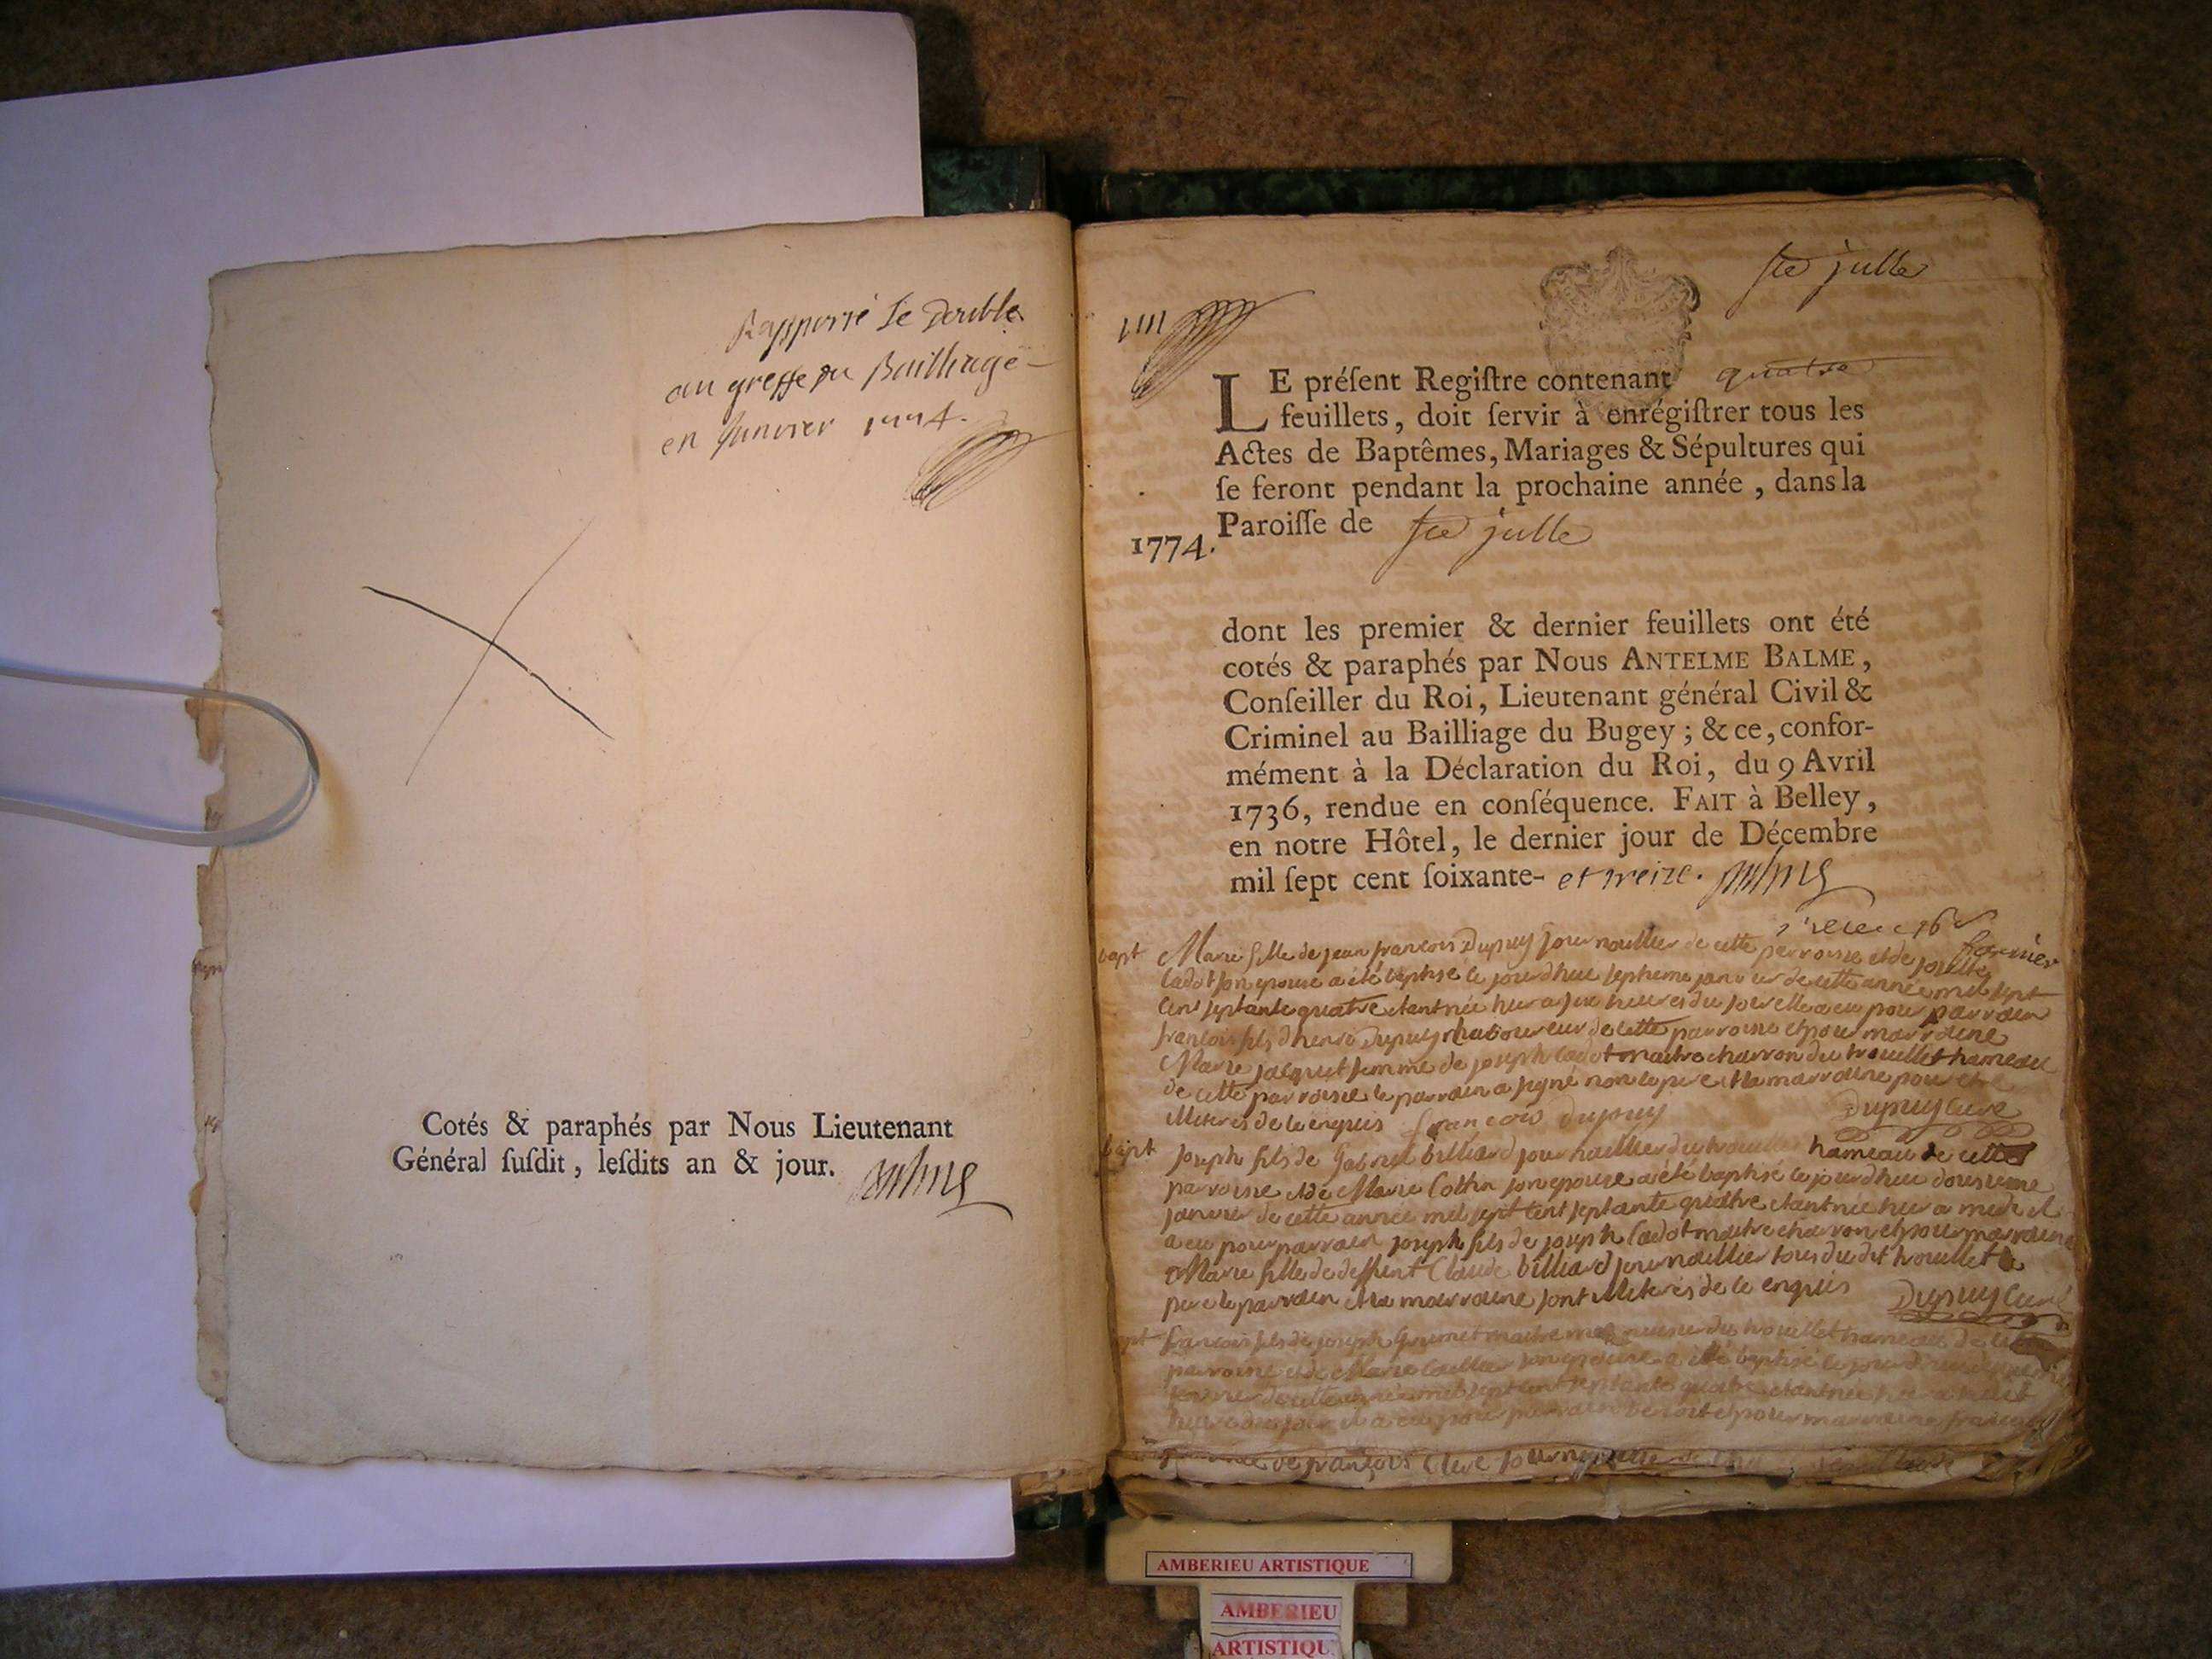 Rapporté Le Double
au greffe du Bailliage
en Janvier 1774.
Cotés & paraphés par Nous Lieutenant
Général ſuſdit, leſdits an & jour. Balme
Ste julle
1111
LE préſent Regiſtre contenant quatre
feuillets, doit ſervir à enrégiſtrer tous les
Actes de Baptêmes, Mariages & Sépultures qui
ſe feront pendant la prochaine année, dans la
Paroiſſe de Ste julle
1774.
dont les premier & dernier feuillets ont été
cotés & paraphés par Nous ANTELME BALME,
Conſeiller du Roi, Lieutenant général Civil &
Criminel au Bailliage du Bugey; & ce, confor-
mément à la Déclaration du Roi, du 9 Avril
1736, rendue en conſéquence. FAIT à Belley,
en notre Hôtel, le dernier jour de Décembre
mil ſept cent ſoixante- et treize. Balme
bapt Marie fille de jean francois Dupuy journallier de cette parroisse et de
cadot son epouse a été baptisé le jourdhui septieme janvier de cette année mil sept
cent septante quatre etant née hier a six heures du soir elle a eu pour parrain
francois fils d'henri Dupuy laboureur de cette parroisse et pour marraine
Marie jacquet femme de joseph cadot maitre charron du trouillet hameau
de cette parroisse le parrain a signé non le pere et la marraine pour etre
illiteres de ce enquis francois dupuy Dupuy Curé
bapt joseph fils de Gabriel billiard journaillier du trouillet hameau de cette
parroisse et de Marie Cothin son epouse a été baptisé le jourdhui dousieme
janvier de cette année mil sept cent septante quatre etant née hier a midi il
a eu pour parrain joseph fils de joseph Cadot maitre charron et pour marraine
Marie fille de deffunt Claude billiard journaillier tous du dit trouillet le
pere le parrain et la marraine sont illiteres de ce enquis Dupuy Curé
francois fils de joseph maitre du trouillet hameau de
parroisse et de Marie son epouse a été baptisé le
janvier de cette année mil sept cent septante quatre etant née
heure du il a eu pour parrain et pour marraine
de francois
AMBERIEU ARTISTIQUE
AMBERIEU
ARTISTIQU